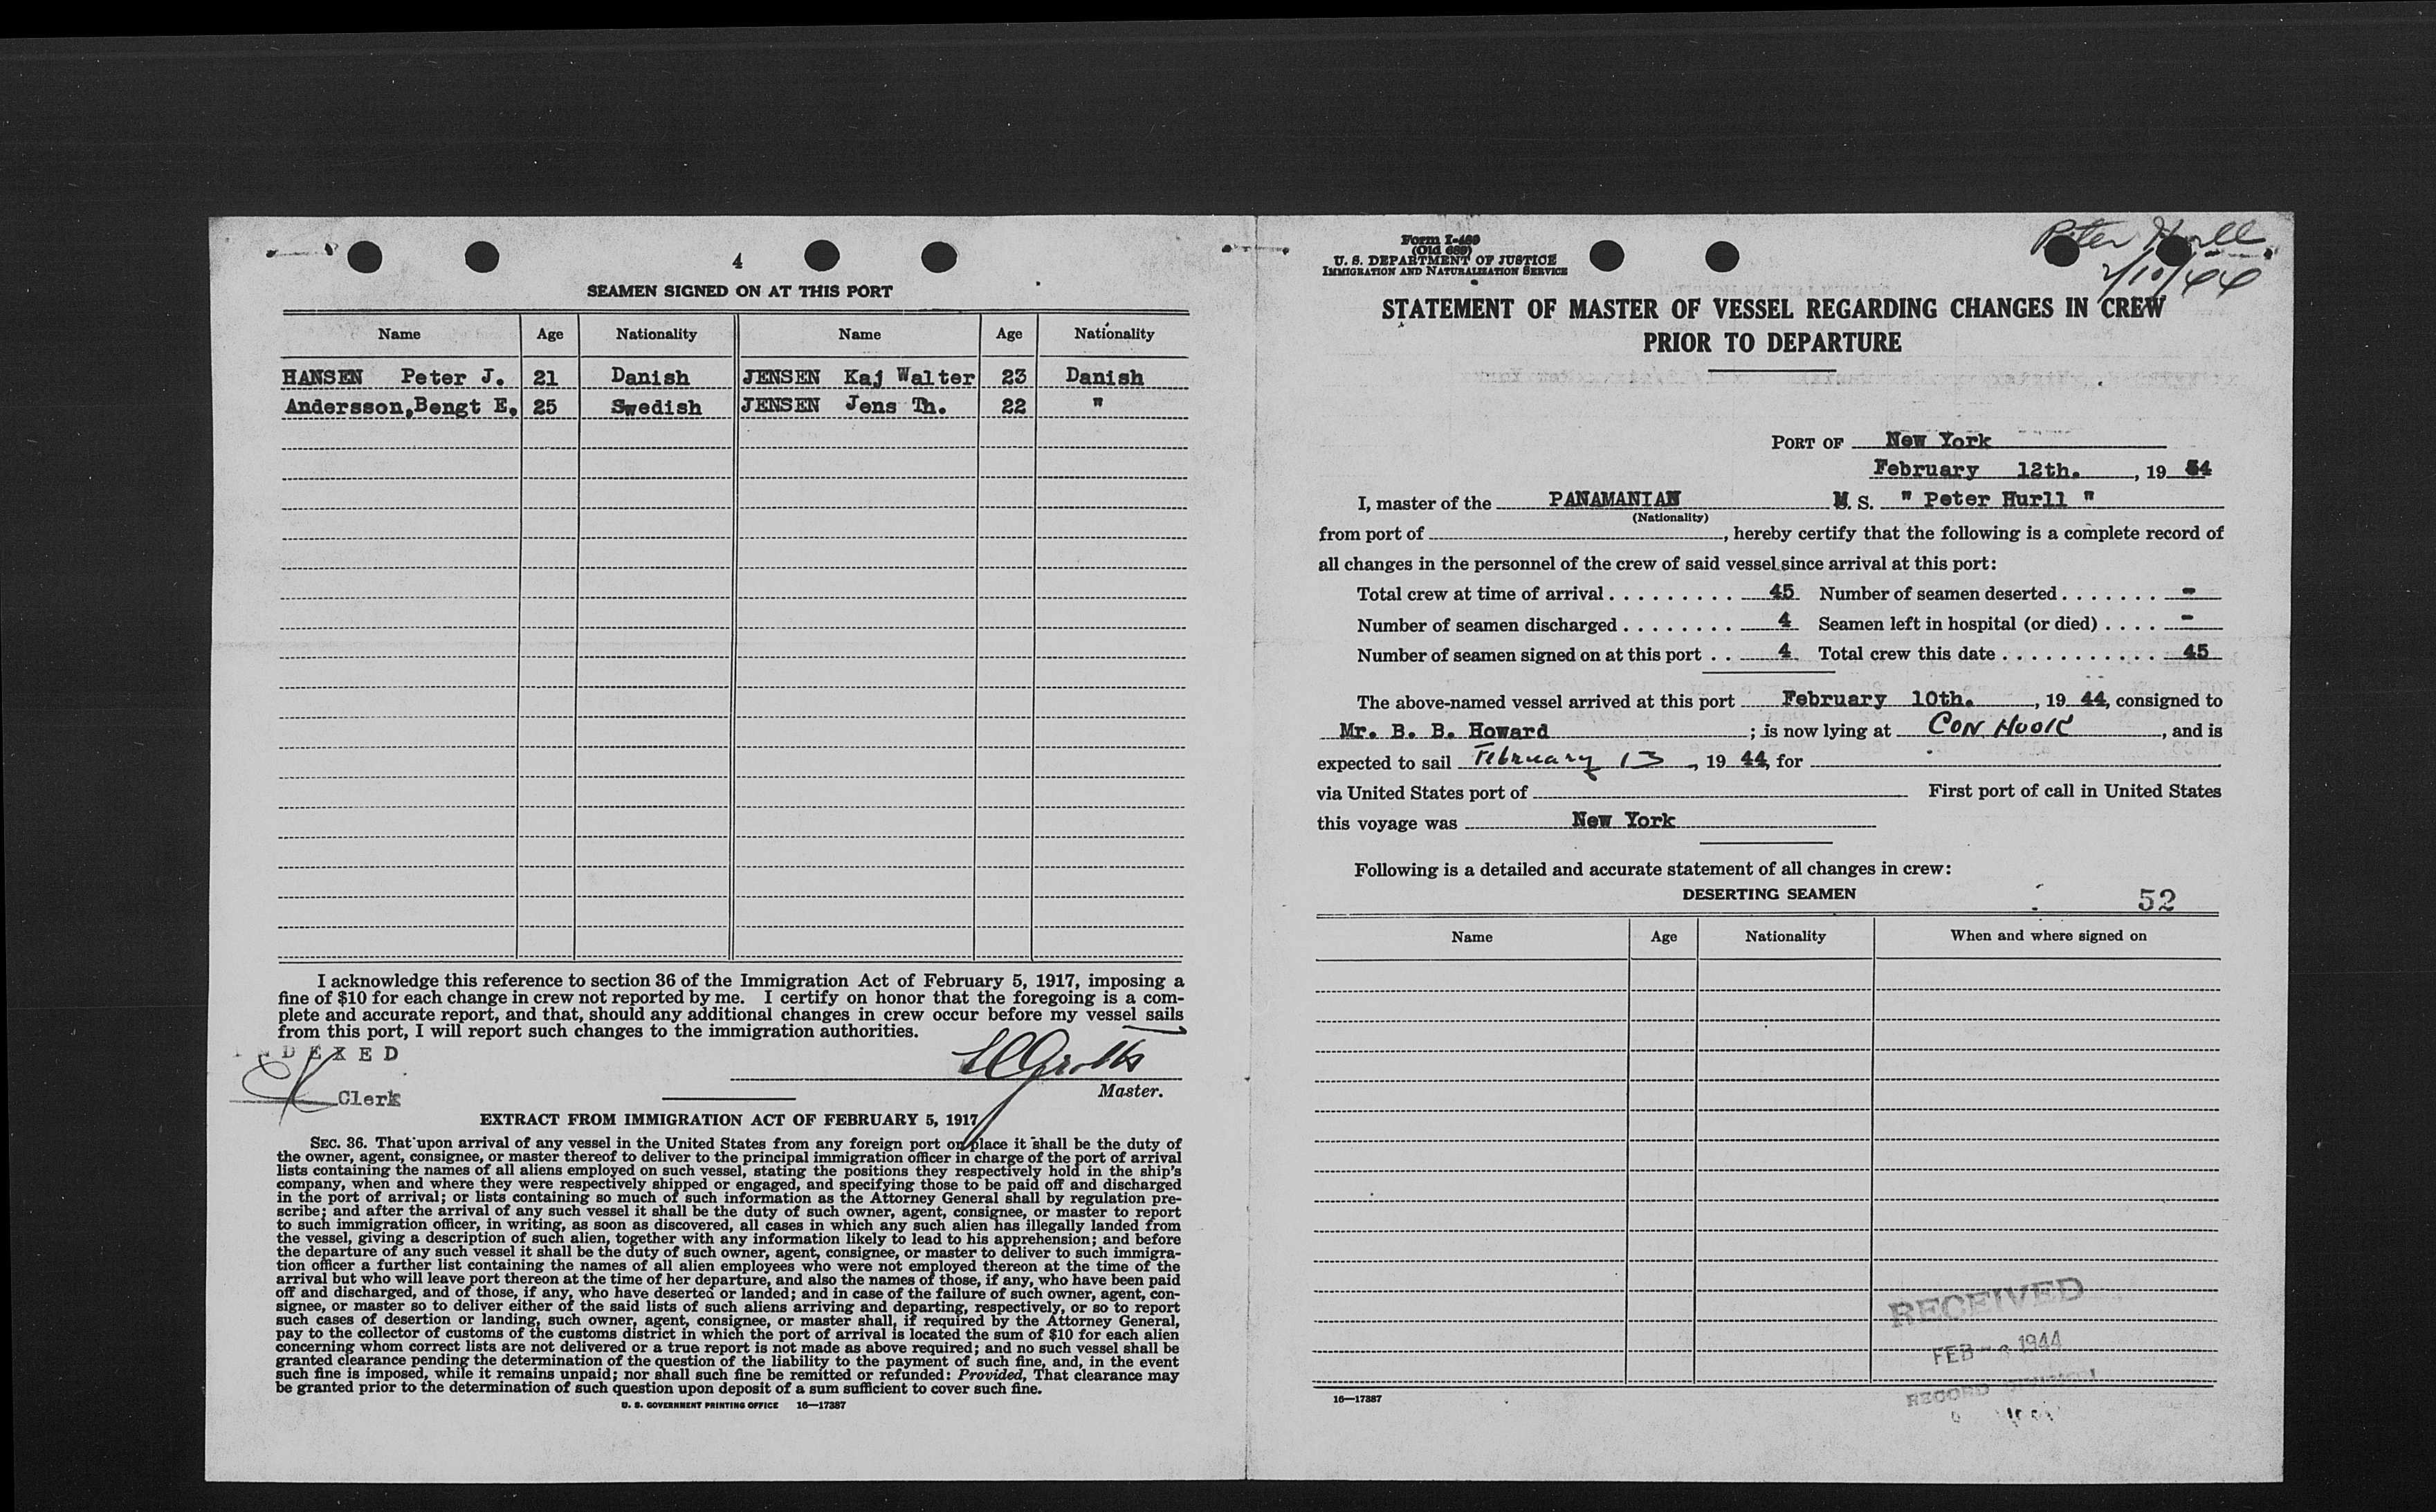 4
SEAMEN SIGNED ON AT THIS PORT
Name Age Nationality Name Age Nationality
HANSEN Peter J. 21 Danish JENSEN Kaj Walter 23 Danish
Andersson,Bengt E. 25 Swedish JENSEN Jens Th. 22 "
I acknowledge this reference to section 36 of the Immigration Act of February 5, 1917, imposing a
fine of $10 for each change in crew not reported by me. I certify on honor that the foregoing is a com-
plete and accurate report, and that, should any additional changes in crew occur before my vessel sails
from this port, I will report such changes to the immigration authorities.
INDEXED
Clerk
Master.
EXTRACT FROM IMMIGRATION ACT OF FEBRUARY 5, 1917
SEC. 36. That upon arrival of any vessel in the United States from any foreign port or place it shall be the duty of
the owner, agent, consignee, or master thereof to deliver to the principal immigration officer in charge of the port of arrival
lists containing the names of all aliens employed on such vessel, stating the positions they respectively hold in the ship's
company, when and where they were respectively shipped or engaged, and specifying those to be paid off and discharged
in the port of arrival; or lists containing so much of such information as the Attorney General shall by regulation pre-
scribe; and after the arrival of any such vessel it shall be the duty of such owner, agent, consignee, or master to report
to such immigration officer, in writing, as soon as discovered, all cases in which any such alien has illegally landed from
the vessel, giving a description of such alien, together with any information likely to lead to his apprehension; and before
the departure of any such vessel it shall be the duty of such owner, agent, consignee, or master to deliver to such immigra-
tion officer a further list containing the names of all alien employees who were not employed thereon at the time of the
arrival but who will leave port thereon at the time of her departure, and also the names of those, if any, who have been paid
off and discharged, and of those, if any, who have deserted or landed; and in case of the failure of such owner, agent, con-
signee, or master so to deliver either of the said lists of such aliens arriving and departing, respectively, or so to report
such cases of desertion or landing, such owner, agent, consignee, or master shall, if required by the Attorney General,
pay to the collector of customs of the customs district in which the port of arrival is located the sum of $10 for each alien
concerning whom correct lists are not delivered or a true report is not made as above required; and no such vessel shall be
granted clearance pending the determination of the question of the liability to the payment of such fine, and, in the event
such fine is imposed, while it remains unpaid; nor shall such fine be remitted or refunded: Provided, That clearance may
be granted prior to the determination of such question upon deposit of a sum sufficient to cover such fine.
U. S. GOVERNMENT PRINTING OFFICE 16—17387
Peter Hurll
2/10/44
Form I-489
(Old 689)
U. S. DEPARTMENT OF JUSTICE
IMMIGRATION AND NATURALIZATION SERVICE
STATEMENT OF MASTER OF VESSEL REGARDING CHANGES IN CREW
PRIOR TO DEPARTURE
PORT OF New York
February 12th. , 19 44
I, master of the PANAMANIAN M. S. " Peter Hurll "
(Nationality)
from port of , hereby certify that the following is a complete record of
all changes in the personnel of the crew of said vessel since arrival at this port:
Total crew at time of arrival . . . . . . . . . 45 Number of seamen deserted . . . . . . . -
Number of seamen discharged . . . . . . . . 4 Seamen left in hospital (or died) . . . . -
Number of seamen signed on at this port . . 4 Total crew this date . . . . . . . . . . . 45
The above-named vessel arrived at this port February 10th. , 19 44, consigned to
Mr. B. B. Howard ; is now lying at Con Hook , and is
expected to sail February 13 , 19 44, for
via United States port of First port of call in United States
this voyage was New York
Following is a detailed and accurate statement of all changes in crew:
DESERTING SEAMEN
52
Name Age Nationality When and where signed on
RECEIVED
FEB 1944
RECORD
16—17387